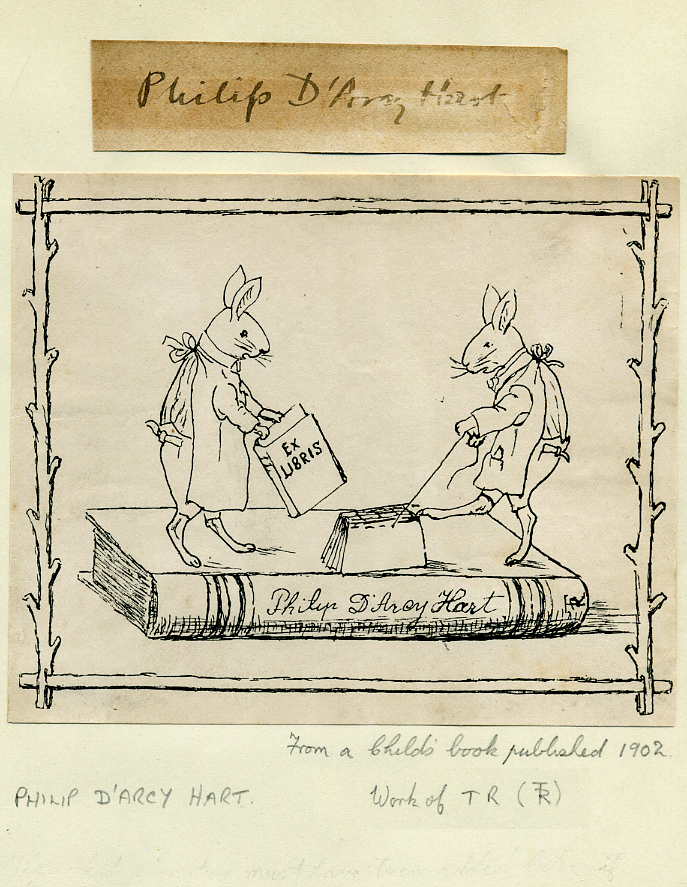 Philip D'Arcy Hart
EX
LIBRIS
Philip D'Arcy Hart
TR
From a Child's book published 1902.
PHILIP D'ARCY HART.
Work of TR (TR)
must have been